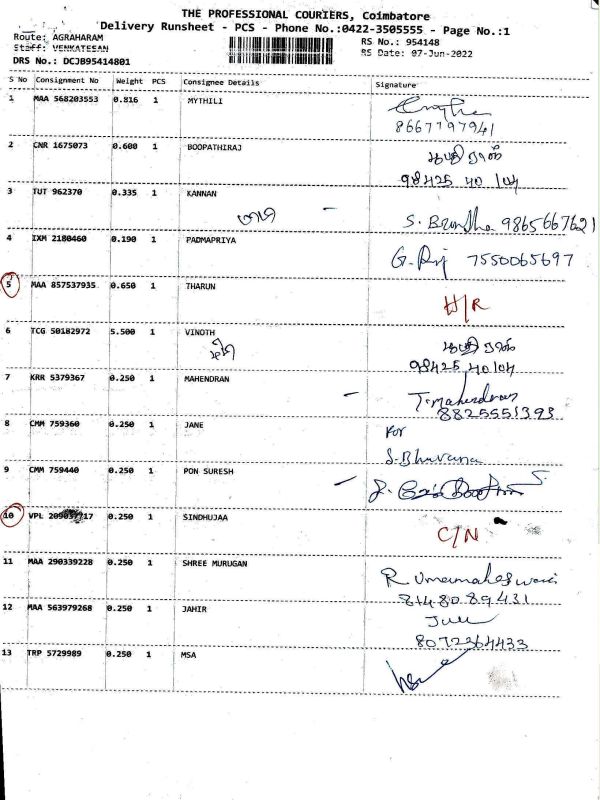 THE PROFESSIONAL COURIERS, Coimbatore
Delivery Runsheet - PCS - Phone No.:0422-3505555 - Page No.:1
Route: AGRAHARAM RS No.: 954148
Staff: VENKATESAN RS Date: 07-Jun-2022
DRS No.: DCJB95414801
S No Consignment No Weight PCS Consignee Details Signature
1 MAA 568203553 0.816 1 MYTHILI
8667197941
2 CNR 1675073 0.600 1 BOOPATHIRAJ
98425 40104
3 TUT 962370 0.335 1 KANNAN
S. Brindha 9865667621
4 IXM 2180460 0.190 1 PADMAPRIYA
G. 7550065697
5 MAA 857537935 0.650 1 THARUN
H/R
6 TCG 50182972 5.500 1 VINOTH
98425 40104
7 KRR 5379367 0.250 1 MAHENDRAN
T. Mahendran
8825551393
8 CMM 759360 0.250 1 JANE
For
S. Bhuvana
9 CMM 759440 0.250 1 PON SURESH
10 VPL 1 SINDHUJAA
0.250
C/N
11 MAA 290339228 0.250 1 SHREE MURUGAN
R. Umamaheswari
8148089431
12 MAA 563979268 0.250 1 JAHIR
8072364433
13 TRP 5729989 0.250 1 MSA